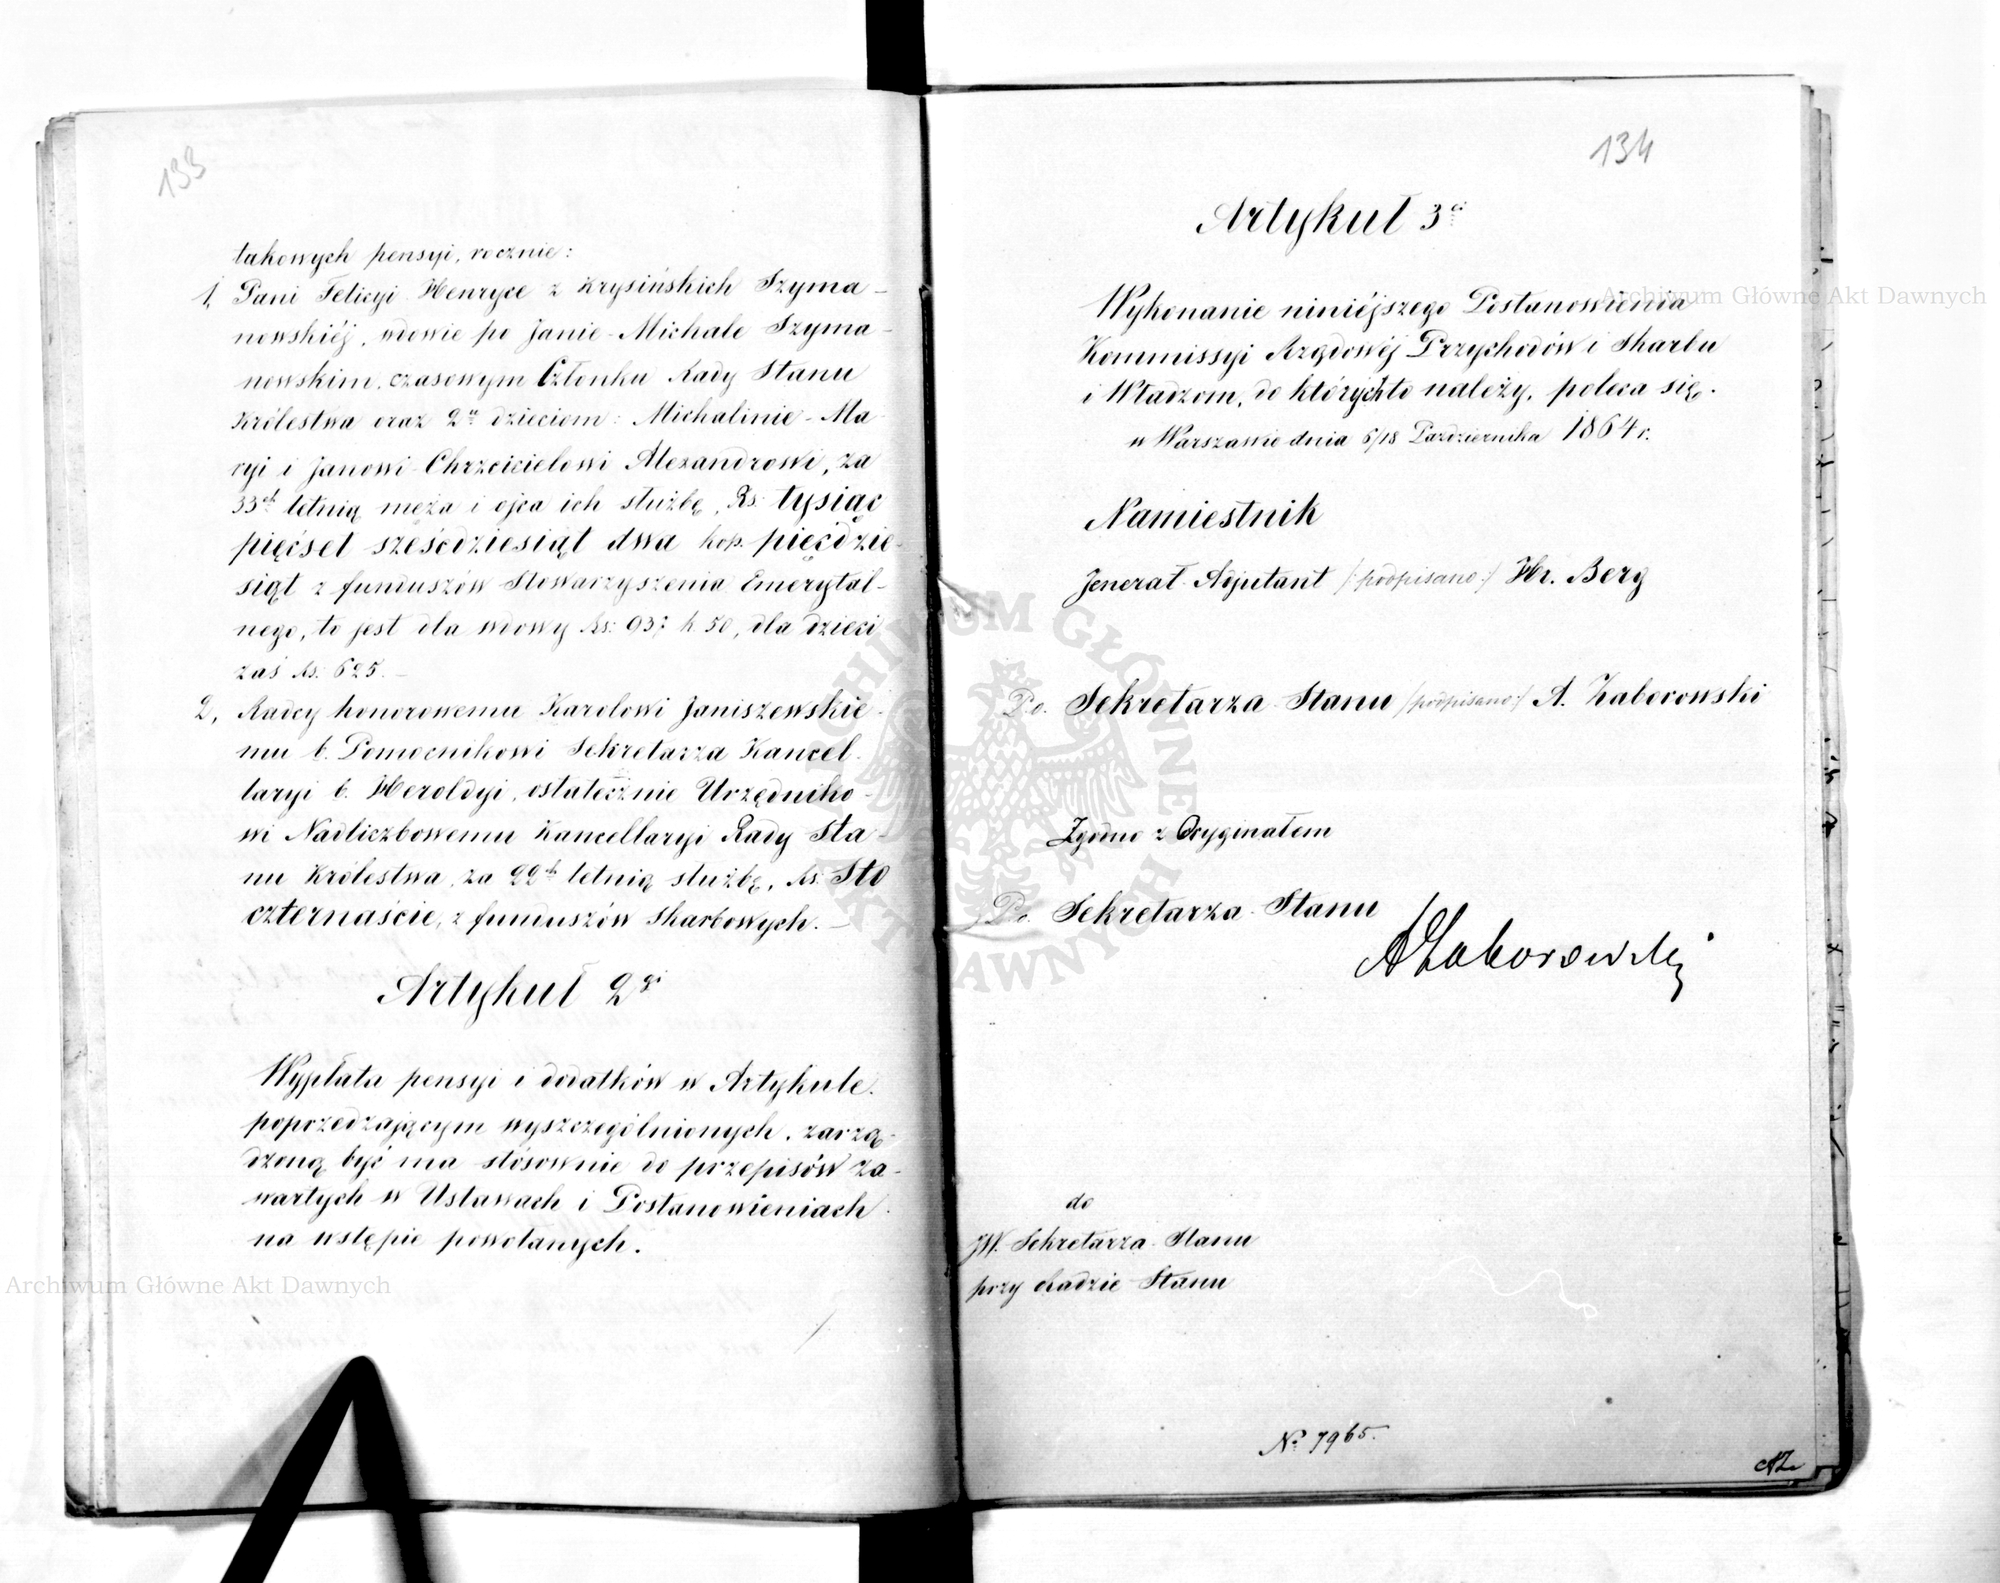 133
takowych pensyi, rocznie:
1, Pani Felicyi Henryce z Krysińskich Szyma-
nowskiéj, wdowie po Janie-Michale Szyma-
nowskim, czasowym Członku Rady Stanu
Królestwa oraz 2u dzieciom: Michalinie-Ma-
ryi i Janowi-Chrzcicielowi Alexandrowi, za
33ch letnią męża i ojca ich służbę, Rs: tysiąc
pięćset sześćdziesiąt dwa kop. pięćdzie-
siąt z funduszów Stowarzyszenia Emerytal-
nego, to jest dla wdowy Rs: 937 k 50, dla dzieci
zaś Rs: 625.
2, Radcy honorowemu Karolowi Janiszewskie-
mu b. Pomocnikowi Sekretarza Kancel-
laryi b. Heroldyi, ostatecznie Urzędniko-
wi Nadliczbowemu Kancellaryi Rady Sta-
nu Królestwa, za 22ch letnią służbę, Rs. Sto
czternaście, z funduszów Skarbowych.
Artykuł 2gi
Wypłata pensyi i dodatków w Artykule
poprzedzającym wyszczególnionych, zarzą-
dzoną być ma stósownie do przepisów za-
wartych w Ustawach i Postanowieniach
na wstępie powołanych.
Archiwum Główne Akt Dawnych
134
Artykuł 3ci
Wykonanie niniéjszego Postanowienia
Archiwum Główne Akt Dawnych
Kommissyi Rządowéj Przychodów i Skarbu
i Władzom, do których to należy, poleca się.
w Warszawie dnia 6/18 Października 1864 r.
Namiestnik
Jenerał-Adjutant /:podpisano:/ Hr. Berg
P.o. Sekretarza Stanu /:podpisano:/ A. Zaborowski
Zgodno z Oryginałem
P.o. Sekretarza Stanu
AZaborowski
do
JW. Sekretarza Stanu
przy Radzie Stanu
No 7965.
AZ
ARCHIWUM GŁÓWNE AKT DAWNYCH